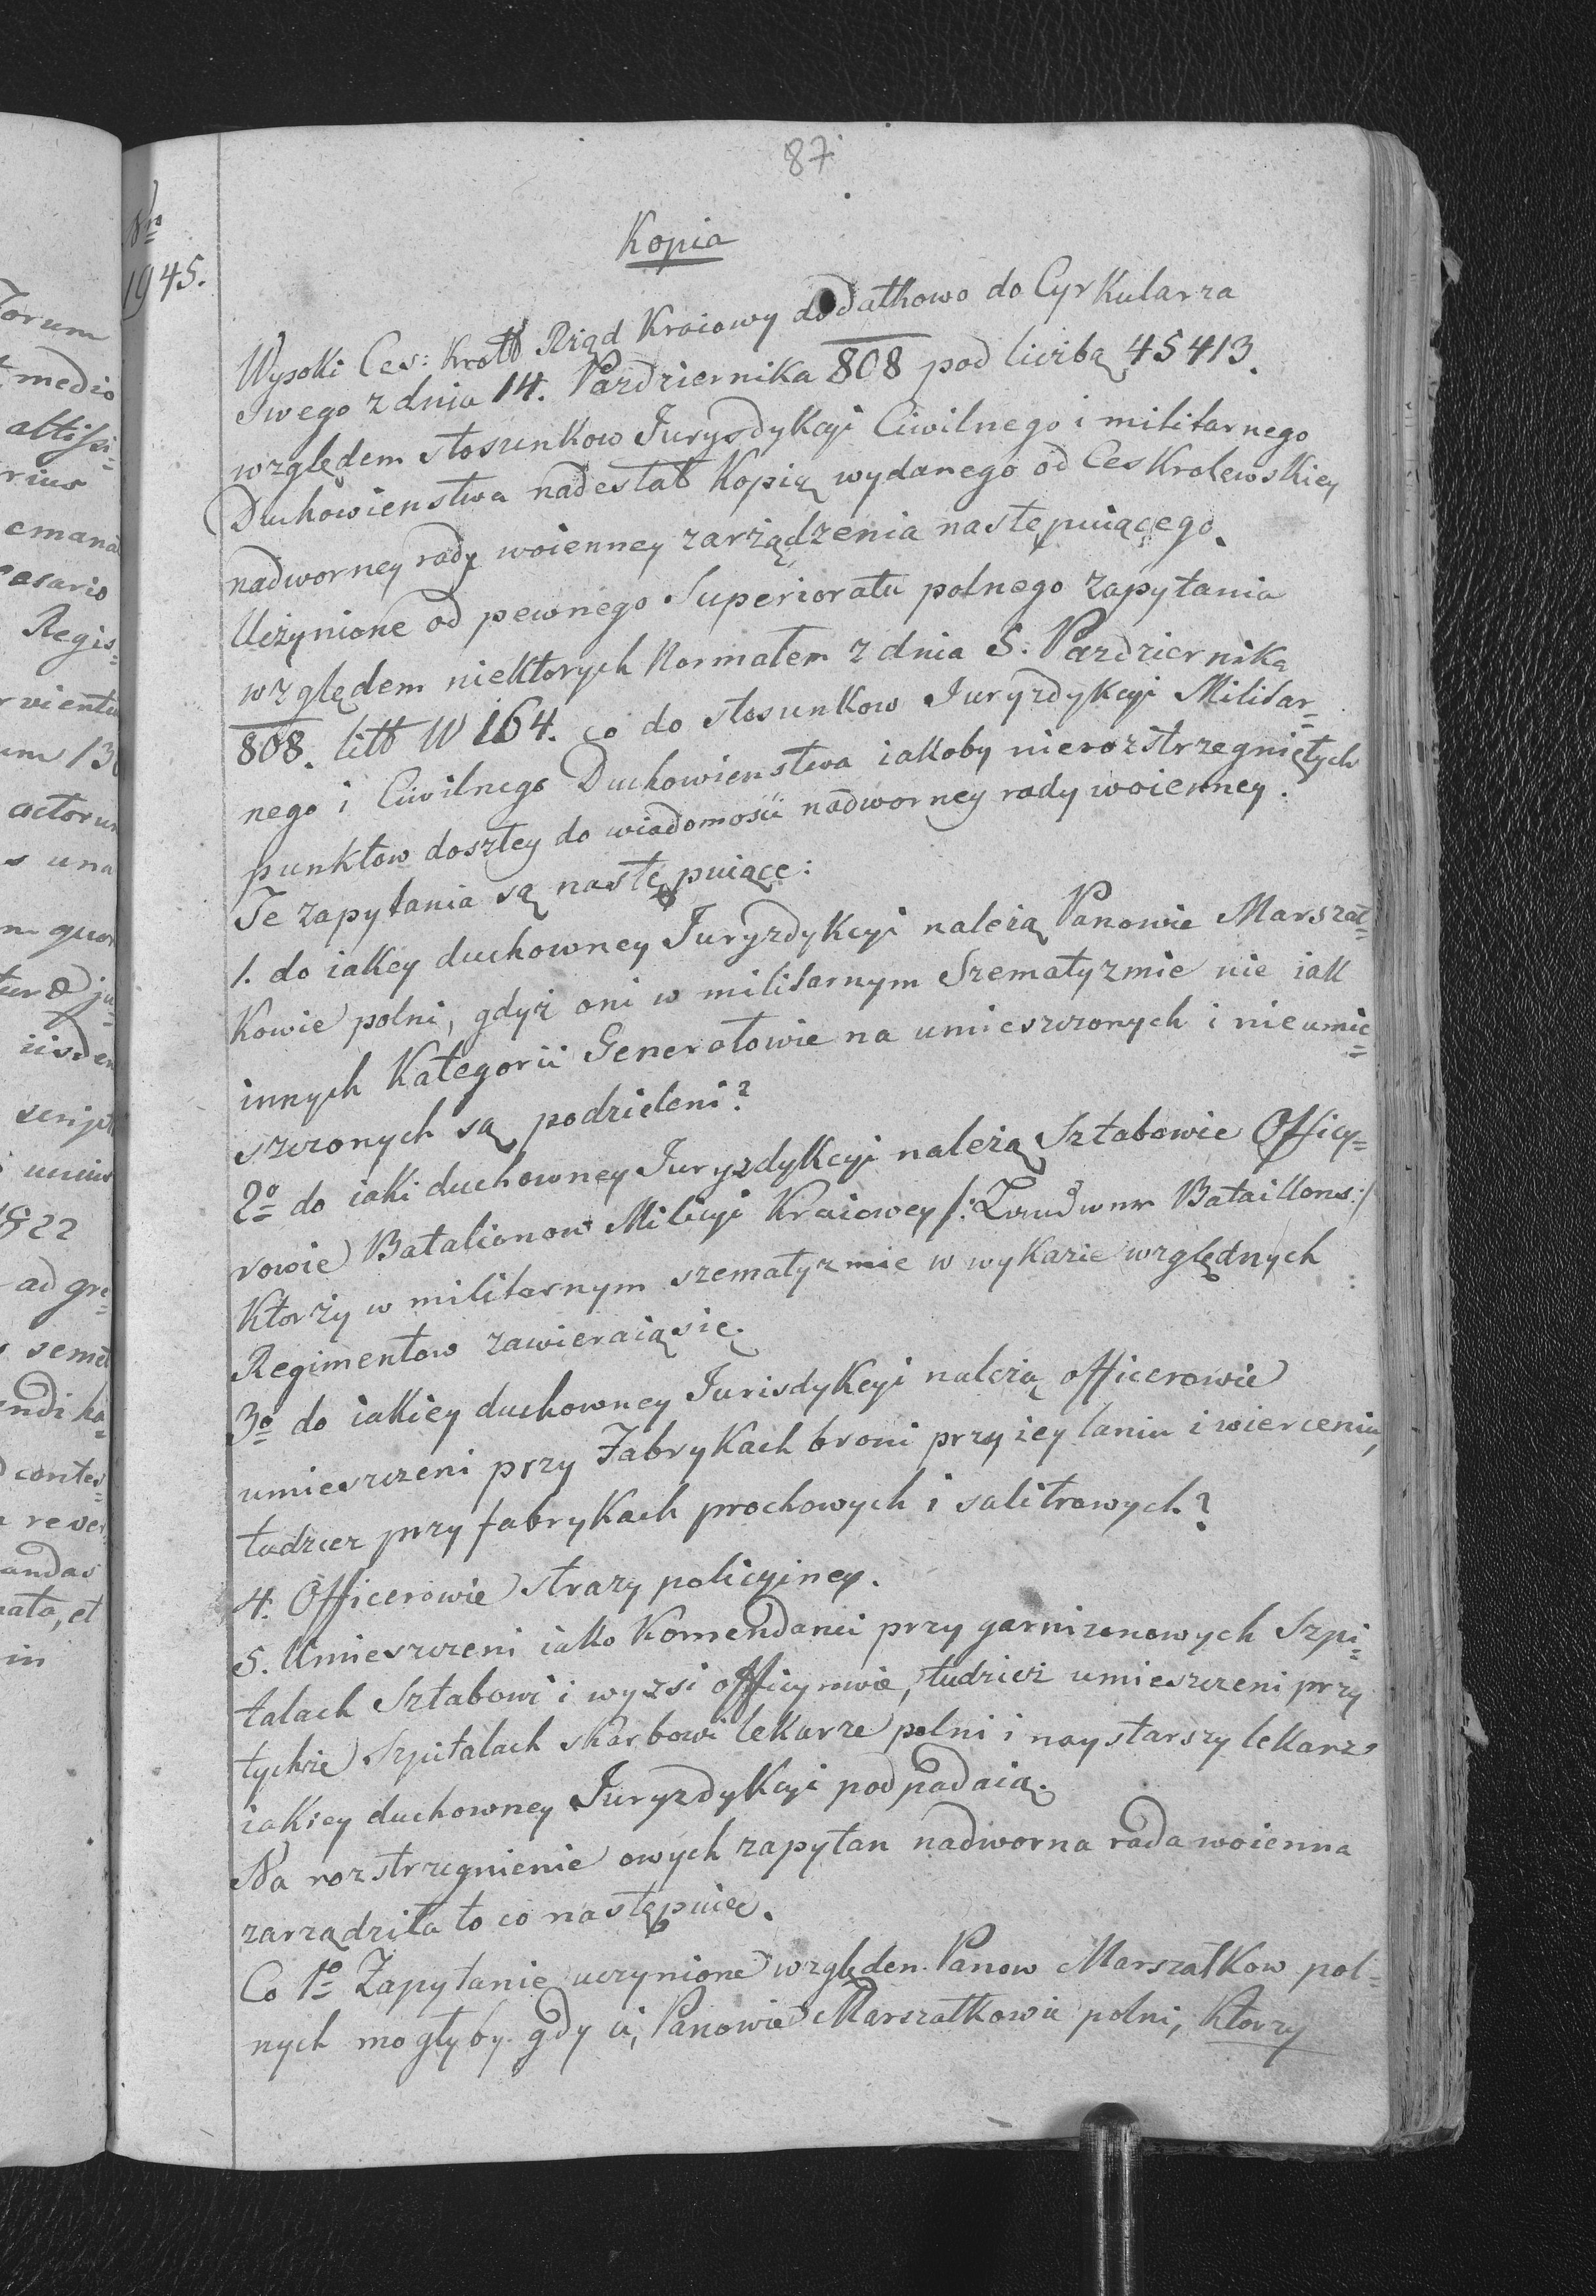 87
Nro
1945.
Kopia
Wysoki Ces: Krolł Rżąd Kraiowy dodatkowo do Cyrkularza
swego z dnia 14. Pazdziernika 808 pod liczbą 45413.
względem stosunkow Juryzdykcyi Ciwilnego i militarnego
Duchowienstwa nadesłał Kopią wydanego od Ces Krolewskiey
nadworney rady woienney zarżądzenia następuiącego.
Uczynione od pewnego Superioratu polnego zapytania
względem niektorych Normatem z dnia 5. Pazdziernika
808. litt W 164. co do stosunkow Juryzdykcyi Militar=
nego i Ciwilnego Duchowienstwa iakoby nierozstrzegniętych
punktow doszłey do wiadomosci nadworney rady woienney.
Te zapytania są następuiące:
1. do iakey duchowney Juryzdykcyi należą Panowie Marszał=
kowie polni, gdyż oni w militarnym Szematyzmie nie iak
innych Kategorii Generałowie na umieszczonych i nieumie=
szczonych są podzieleni?
2o do iaki duchowney Juryzdykcyi należą Sztabowie Officy=
rowie Batalionow Milicyi Kraiowey /: Landwehr Bataillons :/
Ktorży w militarnym szematyzmie w wykazie względnych
Regimentow zawieraią się.
3o do iakiey duchowney Jurisdykcyi należą officerowie
umieszczeni przy Fabrykach broni przy iey laniu i wierceniu,
tudziez przy fabrykach prochowych i salitrowych?
4. Officerowie strazy policyiney.
5. Umieszczeni iako Komendanci przy garnizonowych Szpi=
talach Sztabowi i wyzsi officyrowie, tudzież umieszczeni przy
tychże Szpitalach skarbowi lekarze polni i naystarszy lekarz
iakiey duchowney Juryzdykcyi podpadaią.
Na rozstrzegnienie owych zapytan nadworna rada woienna
zarządziła to co następuie.
Co 1o Zapytanie uczynione względem Panow Marszałkow pol=
nych mogłyby gdy ci, Panowie Marszałkowie polni, Ktorzy